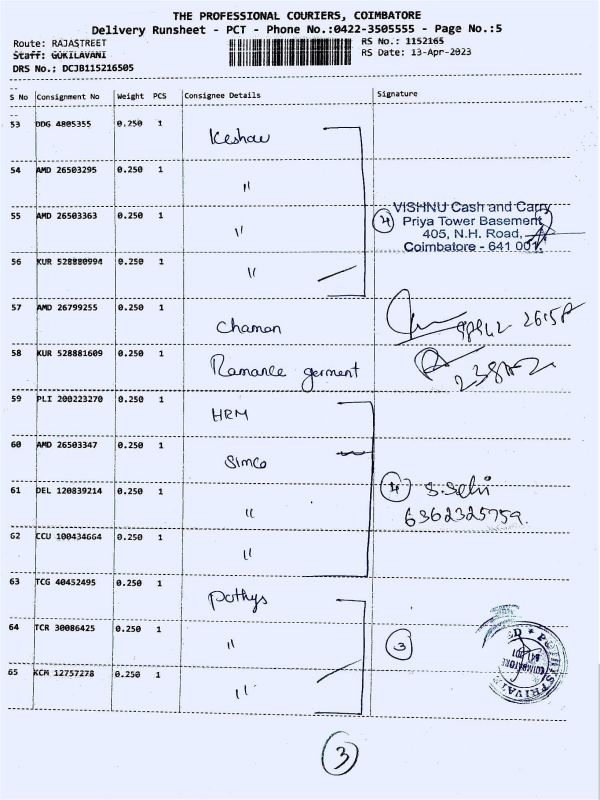 THE PROFESSIONAL COURIERS, COIMBATORE
Delivery Runsheet - PCT - Phone No.:0422-3505555 - Page No.:5
Route: RAJASTREET RS No.: 1152165
Staff: GOKILAVANI RS Date: 13-Apr-2023
DRS No.: DCJB115216505
S No Consignment No Weight PCS Consignee Details Signature
53 DDG 4805355 0.250 1 Keshav
54 AMD 26503295 0.250 1 "
VISHNU Cash and Carry
55 AMD 26503363 0.250 1 " 4 Priya Tower Basement,
405, N.H. Road,
Coimbatore - 641 001.
56 KUR 528880994 0.250 1 "
57 AMD 26799255 0.250 1 Chaman
58 KUR 528881609 0.250 1 Ramanee germent
59 PLI 200223270 0.250 1 HRM
60 AMD 26503347 0.250 1 Simco
61 DEL 120839214 0.250 1 " 4 S. Selvi
6362325759.
62 CCU 100434664 0.250 1 "
63 TCG 40452495 0.250 1 Pothys
64 TCR 30086425 0.250 1 " 3
65 KCM 12757278 0.250 1 "
COIMBATORE
3